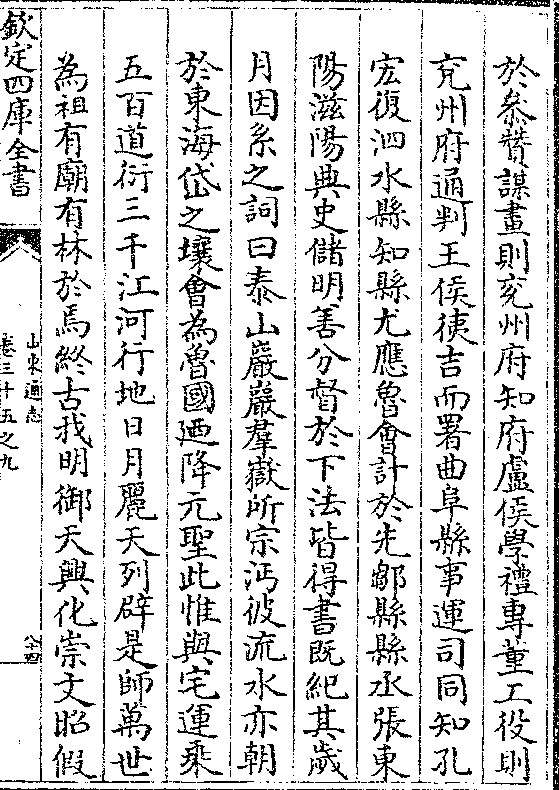 於叅賛謀畫則兖州府知府盧侯學禮專董工役則
兖州府通判王侯𢓡吉而署曲阜縣事運司同知孔
宏復泗水縣知縣尤應魯會計於先鄒縣縣丞張東
陽滋陽典史儲明善分督於下法皆得書既紀其歲
月因系之詞曰泰山巖巖羣嶽所宗沔彼流水亦朝
於東海岱之壤㑹為魯國廼降元聖此惟與宅運乘
五百道衍三千江河行地日月麗天列辟是師萬世
為祖有廟有林於焉終古我明御天興化崇文昭假
欽定四庫全書
山東通志
卷三十五之九